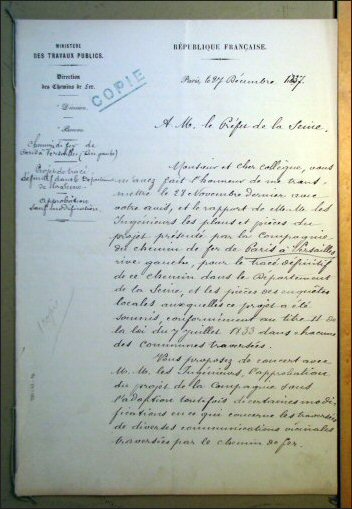 MINISTÈRE
DES TRAVAUX PUBLICS.
Direction
des Chemins de Fer.
Division.
Bureau.
Chemin de fer de
Paris à Versailles (rive gauche)
Projet de tracé
définitif dans le Département
de la Seine
Approbation
sauf modification
COPIE
RÉPUBLIQUE FRANÇAISE.
Paris, le 27 Décembre 1837.
A M. le Préfet de la Seine,
Monsieur et Cher collègue, vous
m'avez fait l'honneur de me trans-
mettre le 28 Novembre dernier, avec
votre avis, et le rapport de M. M. les
Ingénieurs les plans et pièces du
projet présenté par la Compagnie
du chemin de fer de Paris à Versailles,
rive gauche, pour le tracé définitif
de ce chemin dans le Département
de la Seine, et les pièces des enquêtes
locales auxquelles ce projet a été
soumis conformément au titre II de
la loi du 7 juillet 1833 dans chacune
des communes traversées.
Vous proposez de concert avec
M. M. les Ingénieurs, l'approbation
du projet de la Compagnie sous
l'adoption toutefois de certaines modi-
fications en ce qui concerne les traversées
de diverses communications vicinales
traversées par le chemin de fer.